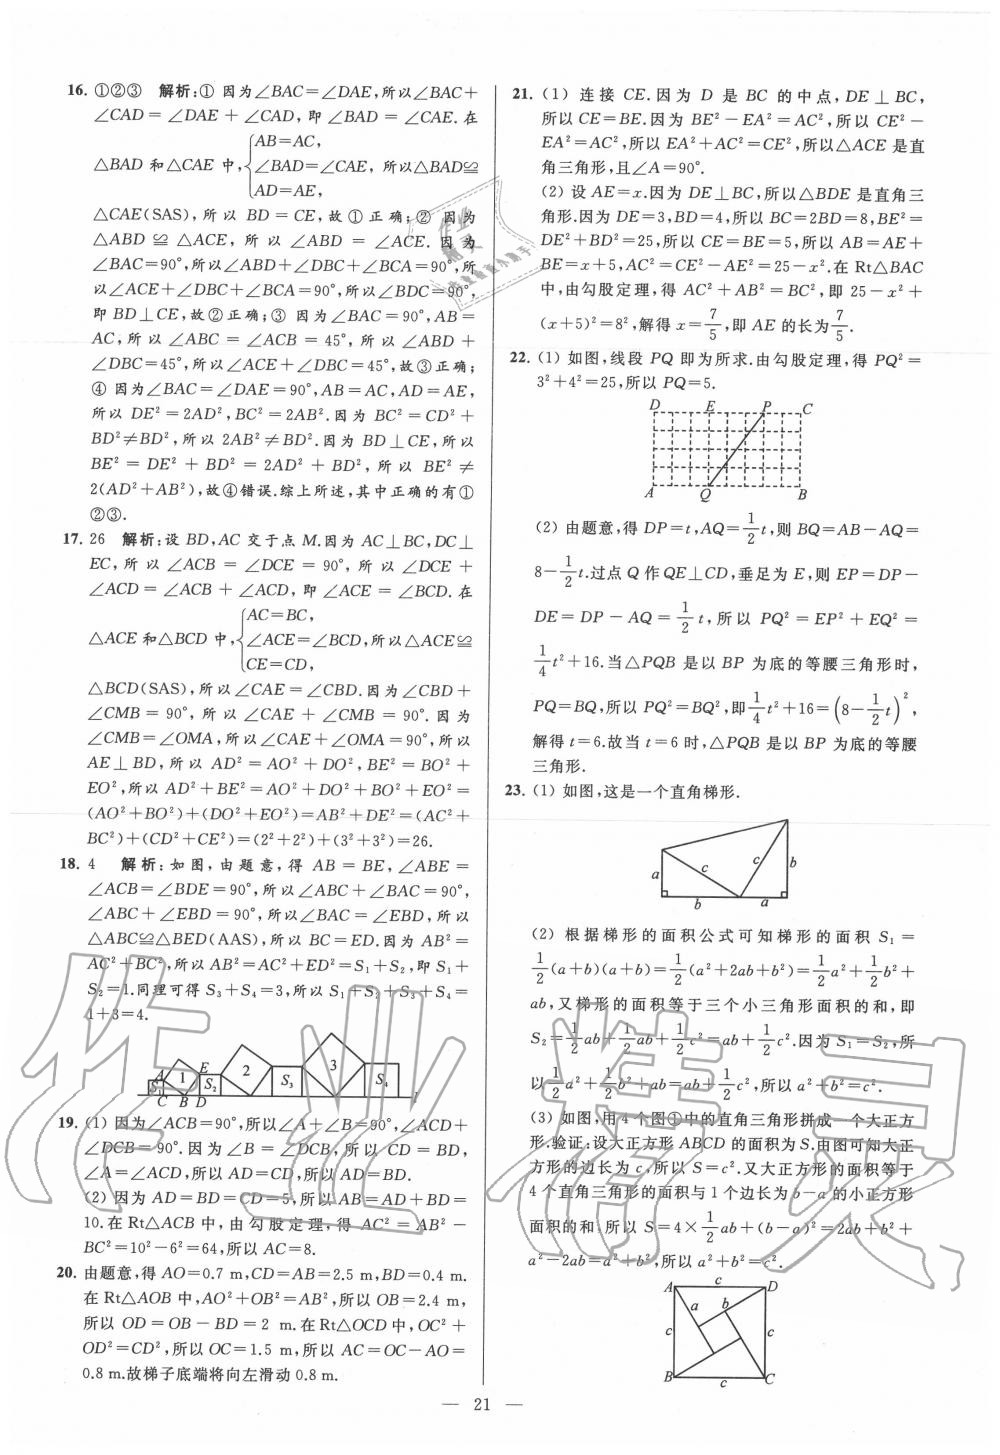 16. ①②③ 解析:① 因为∠BAC=∠DAE,所以∠BAC+
∠CAD=∠DAE+∠CAD,即∠BAD=∠CAE.在
△BAD 和△CAE 中,{AB=AC,
∠BAD=∠CAE, 所以△BAD≌
AD=AE,
△CAE(SAS),所以 BD=CE,故①正确;② 因为
△ABD≌△ACE,所以∠ABD=∠ACE.因为
∠BAC=90°,所以∠ABD+∠DBC+∠BCA=90°,所
以∠ACE+∠DBC+∠BCA=90°,所以∠BDC=90°,
即 BD⊥CE,故②正确;③ 因为∠BAC=90°,AB=
AC,所以∠ABC=∠ACB=45°,所以∠ABD+
∠DBC=45°,所以∠ACE+∠DBC=45°,故③正确;
④ 因为∠BAC=∠DAE=90°,AB=AC,AD=AE,
所以 DE²=2AD²,BC²=2AB².因为 BC²=CD²+
BD²≠BD²,所以 2AB²≠BD².因为 BD⊥CE,所以
BE²=DE²+BD²=2AD²+BD²,所以 BE²≠
2(AD²+AB²),故④错误.综上所述,其中正确的有①
②③.
17. 26 解析:设 BD,AC 交于点 M.因为 AC⊥BC,DC⊥
EC,所以∠ACB=∠DCE=90°,所以∠DCE+
∠ACD=∠ACB+∠ACD,即∠ACE=∠BCD.在
△ACE 和△BCD 中,{AC=BC,
∠ACE=∠BCD,所以△ACE≌
CE=CD,
△BCD(SAS),所以∠CAE=∠CBD.因为∠CBD+
∠CMB=90°,所以∠CAE+∠CMB=90°.因为
∠CMB=∠OMA,所以∠CAE+∠OMA=90°,所以
AE⊥BD,所以 AD²=AO²+DO²,BE²=BO²+
EO²,所以 AD²+BE²=AO²+DO²+BO²+EO²=
(AO²+BO²)+(DO²+EO²)=AB²+DE²=(AC²+
BC²)+(CD²+CE²)=(2²+2²)+(3²+3²)=26.
18. 4 解析:如图,由题意,得 AB=BE,∠ABE=
∠ACB=∠BDE=90°,所以∠ABC+∠BAC=90°,
∠ABC+∠EBD=90°,所以∠BAC=∠EBD,所以
△ABC≌△BED(AAS),所以 BC=ED.因为 AB²=
AC²+BC²,所以 AB²=AC²+ED²=S₁+S₂,即 S₁+
S₂=1.同理可得 S₃+S₄=3,所以 S₁+S₂+S₃+S₄=
1+3=4.
A 1 E 2 3
S₁ S₂ S₃ S₄
C B D l
19. (1) 因为∠ACB=90°,所以∠A+∠B=90°,∠ACD+
∠DCB=90°.因为∠B=∠DCB,所以 CD=BD,
∠A=∠ACD,所以 AD=CD,所以 AD=BD.
(2) 因为 AD=BD=CD=5,所以 AB=AD+BD=
10.在 Rt△ACB 中,由勾股定理,得 AC²=AB²−
BC²=10²−6²=64,所以 AC=8.
20. 由题意,得 AO=0.7 m,CD=AB=2.5 m,BD=0.4 m.
在 Rt△AOB 中,AO²+OB²=AB²,所以 OB=2.4 m,
所以 OD=OB−BD=2 m.在 Rt△OCD 中,OC²+
OD²=CD²,所以 OC=1.5 m,所以 AC=OC−AO=
0.8 m.故梯子底端将向左滑动 0.8 m.
21. (1) 连接 CE.因为 D 是 BC 的中点,DE⊥BC,
所以 CE=BE.因为 BE²−EA²=AC²,所以 CE²−
EA²=AC²,所以 EA²+AC²=CE²,所以△ACE 是直
角三角形,且∠A=90°.
(2) 设 AE=x.因为 DE⊥BC,所以△BDE 是直角三
角形.因为 DE=3,BD=4,所以 BC=2BD=8,BE²=
DE²+BD²=25,所以 CE=BE=5,所以 AB=AE+
BE=x+5,AC²=CE²−AE²=25−x².在 Rt△BAC
中,由勾股定理,得 AC²+AB²=BC²,即 25−x²+
(x+5)²=8²,解得 x=7/5,即 AE 的长为7/5.
22. (1) 如图,线段 PQ 即为所求.由勾股定理,得 PQ²=
3²+4²=25,所以 PQ=5.
D E P C
A Q B
(2) 由题意,得 DP=t,AQ=1/2t,则 BQ=AB−AQ=
8−1/2t.过点 Q 作 QE⊥CD,垂足为 E,则 EP=DP−
DE=DP−AQ=1/2t,所以 PQ²=EP²+EQ²=
1/4t²+16.当△PQB 是以 BP 为底的等腰三角形时,
PQ=BQ,所以 PQ²=BQ²,即1/4t²+16=(8−1/2t)²,
解得 t=6.故当 t=6 时,△PQB 是以 BP 为底的等腰
三角形.
23. (1) 如图,这是一个直角梯形.
a c c b
b a
(2) 根据梯形的面积公式可知梯形的面积 S₁=
1/2(a+b)(a+b)=1/2(a²+2ab+b²)=1/2a²+1/2b²+
ab,又梯形的面积等于三个小三角形面积的和,即
S₂=1/2ab+1/2ab+1/2c²=ab+1/2c².因为 S₁=S₂,所
以1/2a²+1/2b²+ab=ab+1/2c²,所以 a²+b²=c².
(3) 如图,用 4 个图①中的直角三角形拼成一个大正方
形.验证:设大正方形 ABCD 的面积为 S.由图可知大正
方形的边长为 c,所以 S=c².又大正方形的面积等于
4 个直角三角形的面积与 1 个边长为 b−a 的小正方形
面积的和,所以 S=4×1/2ab+(b−a)²=2ab+b²+
a²−2ab=a²+b²,所以 a²+b²=c².
A c D
a b
c c
B c C
— 21 —
作业精灵